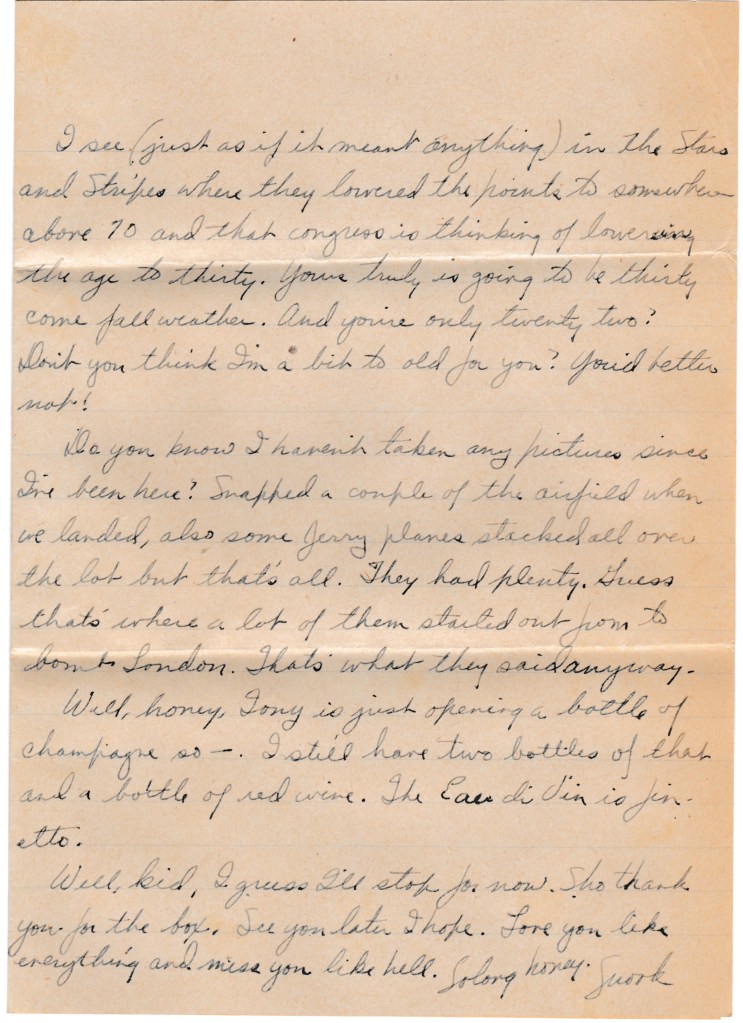 I see (just as if it meant anything) in the Stars
and Stripes where they lowered the points to somewhere
above 70 and that congress is thinking of lowering
the age to thirty. Yours truly is going to be thirty
come fall weather. And you're only twenty two?
Don't you think I'm a bit to old for you? You'd better
not!
Do you know I haven't taken any pictures since
I've been here? Snapped a couple of the airfield when
we landed, also some Jerry planes stacked all over
the lot but that's all. They had plenty. Guess
that's where a lot of them started out from to
bomb London. That's what they said anyway.
Well, honey, Tony is just opening a bottle of
champagne so —. I still have two bottles of that
and a bottle of red wine. The Eau di Vin is fin-
etto.
Well, kid, I guess I'll stop for now. Sho thank
you for the box. See you later I hope. Love you like
everything and miss you like hell. Solong honey.